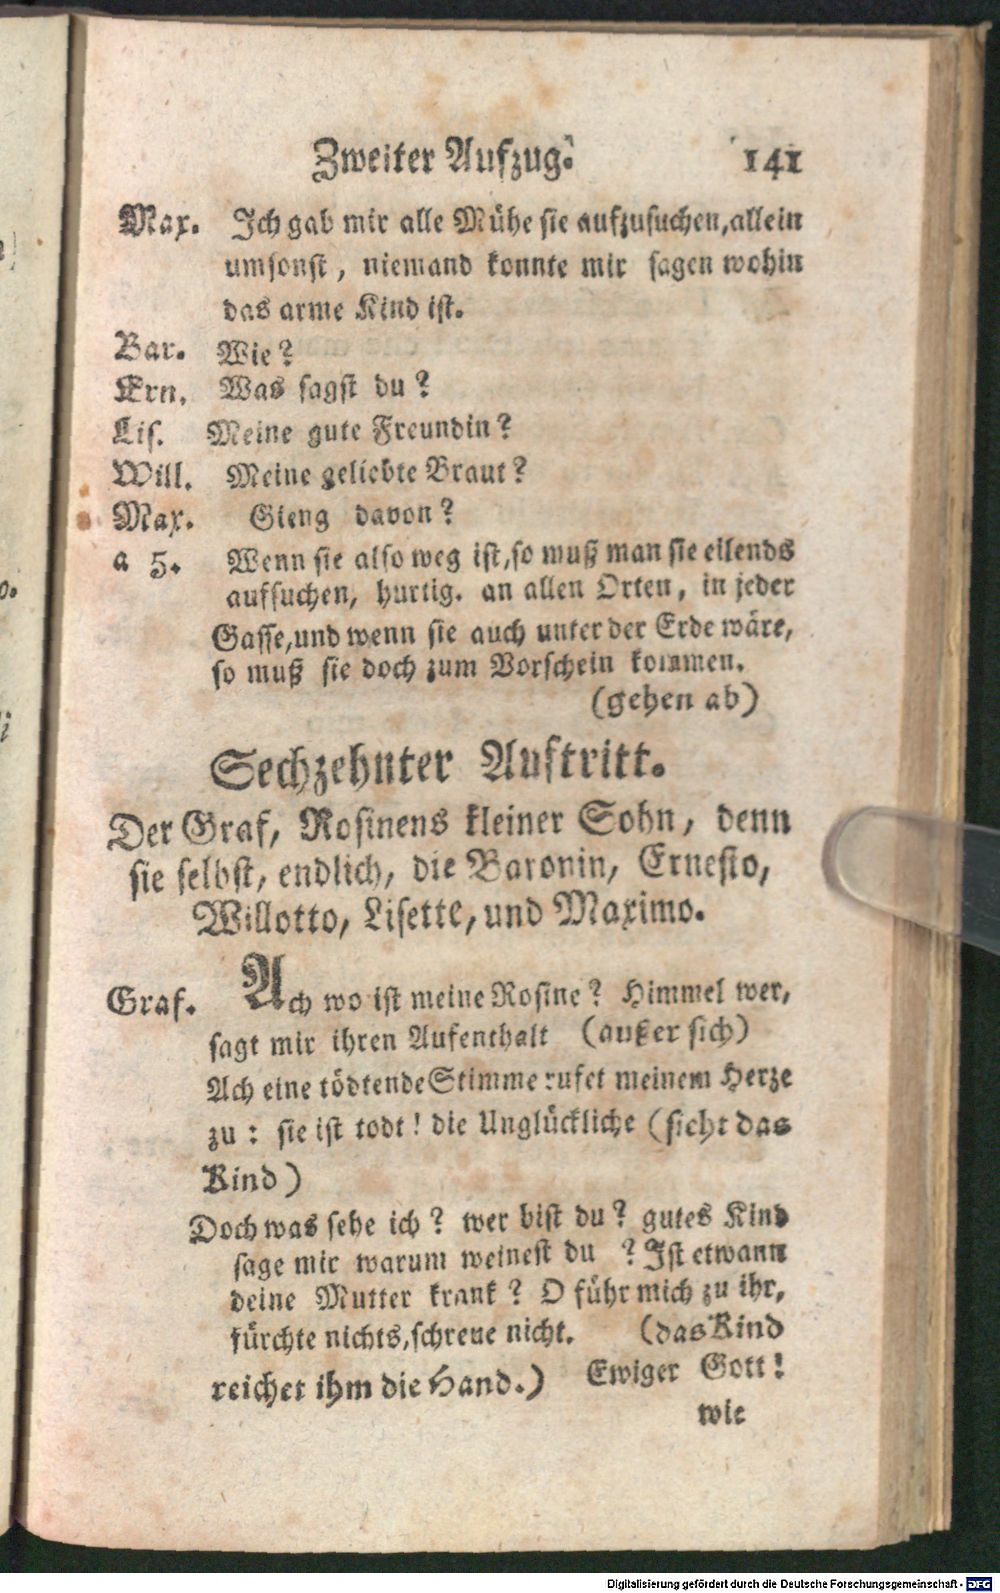 Zweiter Aufzug. 141
Max. Ich gab mir alle Mühe sie aufzusuchen, allein
umsonst, niemand konnte mir sagen wohin
das arme Kind ist.
Bar. Wie?
Ern. Was sagst du?
Lis. Meine gute Freundin?
Will. Meine geliebte Braut?
Max. Gieng davon?
a 5. Wenn sie also weg ist, so muß man sie eilends
aufsuchen, hurtig. an allen Orten, in jeder
Gasse, und wenn sie auch unter der Erde wäre,
so muß sie doch zum Vorschein kommen.
(gehen ab)
Sechzehnter Auftritt.
Der Graf, Rosinens kleiner Sohn, denn
sie selbst, endlich, die Baronin, Ernesto,
Willotto, Lisette, und Maximo.
Graf. Ach wo ist meine Rosine? Himmel wer,
sagt mir ihren Aufenthalt (außer sich)
Ach eine tödtende Stimme rufet meinem Herze
zu: sie ist todt! die Unglückliche (sieht das
Kind)
Doch was sehe ich? wer bist du? gutes Kind
sage mir warum weinest du ? Ist etwann
deine Mutter krank? O führ mich zu ihr,
fürchte nichts, schreye nicht. (das Kind
reichet ihm die Hand.) Ewiger Gott!
wie
Digitalisierung gefördert durch die Deutsche Forschungsgemeinschaft - DFG